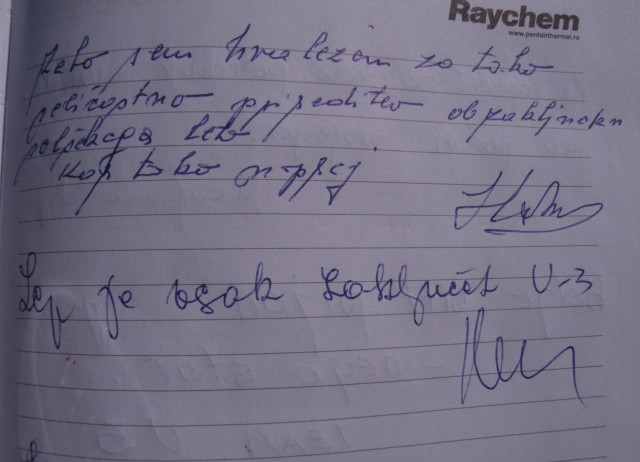 Raychem
www.pentairthermal.rs
zelo sem hvaležen za tako
veličastno prireditev ob zaključku
leto
Kar tako naprej
Lep je vsak zaključek U-3